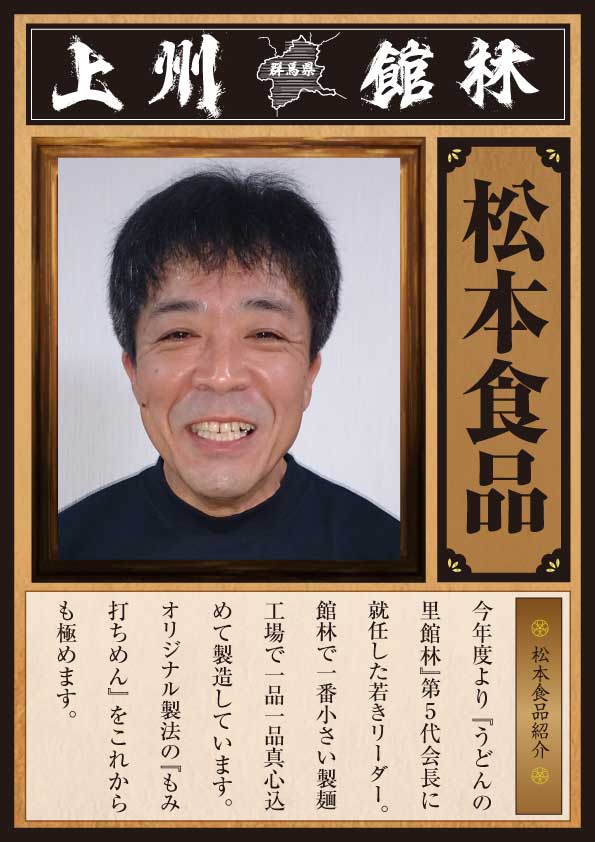 上州
群馬県
館林
松本食品
松本食品紹介
今年度より『うどんの
里館林』第5代会長に
就任した若きリーダー。
館林で一番小さい製麺
工場で一品一品真心込
めて製造しています。
オリジナル製法の『もみ
打ちめん』をこれから
も極めます。